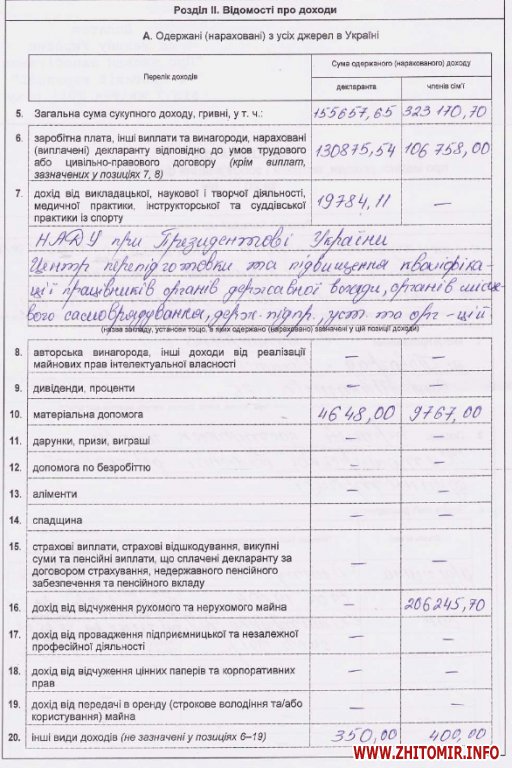 Розділ II. Відомості про доходи
А. Одержані (нараховані) з усіх джерел в Україні
Перелік доходів
Сума одержаного (нарахованого) доходу
декларанта
членів сім'ї
5. Загальна сума сукупного доходу, гривні, у т. ч.: 155657,65 323170,70
6. заробітна плата, інші виплати та винагороди, нараховані
(виплачені) декларанту відповідно до умов трудового
або цивільно-правового договору (крім виплат,
зазначених у позиціях 7, 8) 130875,54 106758,00
7. дохід від викладацької, наукової і творчої діяльності,
медичної практики, інструкторської та суддівської
практики із спорту 19784,11 —
НАДУ при Президентові України
Центр перепідготовки та підвищення кваліфіка-
ції працівників органів державної влади, органів місце-
вого самоврядування, держ. підпр., уст. та орг-цій
(назва закладу, установи тощо, в яких одержано (нараховано) зазначені у цій позиції доходи)
8. авторська винагорода, інші доходи від реалізації
майнових прав інтелектуальної власності — —
9. дивіденди, проценти — —
10. матеріальна допомога 4648,00 9767,00
11. дарунки, призи, виграші — —
12. допомога по безробіттю — —
13. аліменти — —
14. спадщина — —
15. страхові виплати, страхові відшкодування, викупні
суми та пенсійні виплати, що сплачені декларанту за
договором страхування, недержавного пенсійного
забезпечення та пенсійного вкладу — —
16. дохід від відчуження рухомого та нерухомого майна — 206245,70
17. дохід від провадження підприємницької та незалежної
професійної діяльності — —
18. дохід від відчуження цінних паперів та корпоративних
прав — —
19. дохід від передачі в оренду (строкове володіння та/або
користування) майна — —
20. інші види доходів (не зазначені у позиціях 6–19) 350,00 400,00
WWW.ZHITOMIR.INFO